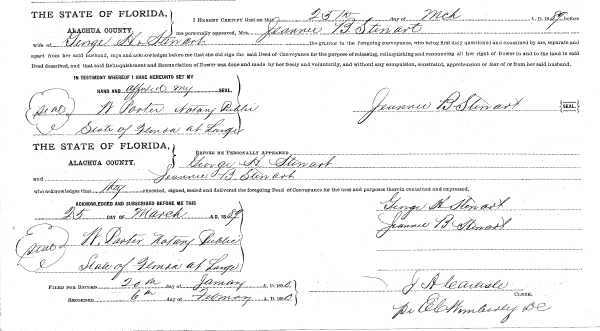 THE STATE OF FLORIDA,
ALACHUA COUNTY.
I HEREBY CERTIFY that on this 25th day of Mch A. D. 1889 before
me personally appeared, Mrs. Jeannie B Stewart
wife of George H. Stewart the grantor to the foregoing conveyance, who being first duly questioned and examined by me, separate and
apart from her said husband, says and acknowledges before me that she did sign the said Deed of Conveyance for the purpose of releasing, relinquishing and renouncing all her right of Dower to and to the land in said
Deed described, and that said Relinquishment and Renunciation of Dower was done and made by her freely and voluntarily, and without any compulsion, constraint, apprehension or fear of or from her said husband.
IN TESTIMONY WHEREOF I HAVE HEREUNTO SET MY
HAND AND affixed my SEAL.
Seal W. Porter Notary Public
State of Florida at Large
Jeannie B Stewart {SEAL}
THE STATE OF FLORIDA,
ALACHUA COUNTY.
BEFORE ME PERSONALLY APPEARED
George H. Stewart
and Jeannie B Stewart
who acknowledges that they executed, signed, sealed and delivered the foregoing Deed of Conveyance for the uses and purposes therein contained and expressed.
ACKNOWLEDGED AND SUBSCRIBED BEFORE ME THIS
25 DAY OF March A. D. 1889
George H Stewart
Jeannie B Stewart
Seal W. Porter Notary Public
State of Florida at Large
FILED FOR RECORD 20th day of January A. D. 1890
RECORDED 6th day of February A. D. 1890
J A Carlisle
CLERK.
per E C Wimberly DC